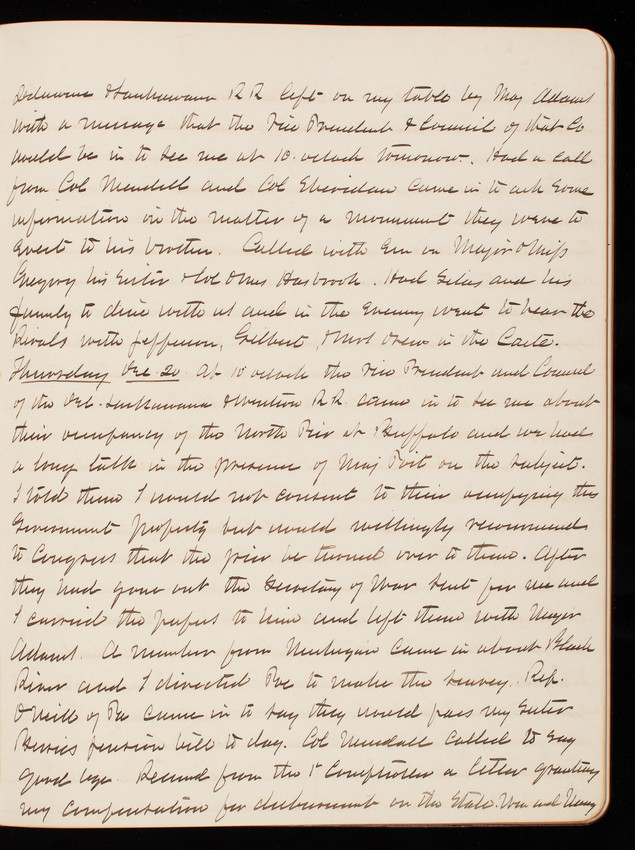 Delaware & Lackawana RR left on my table by Maj Adams
with a message that the Vice President & Council of that Co
would be in to see me at 10 oclock tomorrow. Had a call
from Col Mendell and Col Sheridan came in to ask some
information in the matter of a monument they were to
erect to his brother. Called with Em on Major & Miss
Gregory his sister & Col & Mrs Hasbrook. Had Giles and his
family to dine with us and in the evening went to hear the
Rivals with Jefferson, Gilbert, & Mrs Drew in the Caste.
Thursday Dec. 20 At 10 oclock the Vice President and Council
of the Del. Lackawana & Western R.R. came in to see me about
their occupancy of the North Pier at Buffalo and we had
a long talk in the presence of Maj Post on the subject.
I told them I would not consent to their occupying the
Government property but would willingly recommend
to Congress that the pier be turned over to them. After
they had gone out the Secretary of War sent for me and
I carried the papers to him and left them with Major
Adams. A member from Michigan came in about Black
River and I directed Poe to make the survey. Rep.
O'Neill of Pa came in to say they would pass my sister
pension bill to day. Col Mendell called to say
good bye. Received from the 1st Comptroller a letter granting
my compensation for disbursement on the State, War and Navy